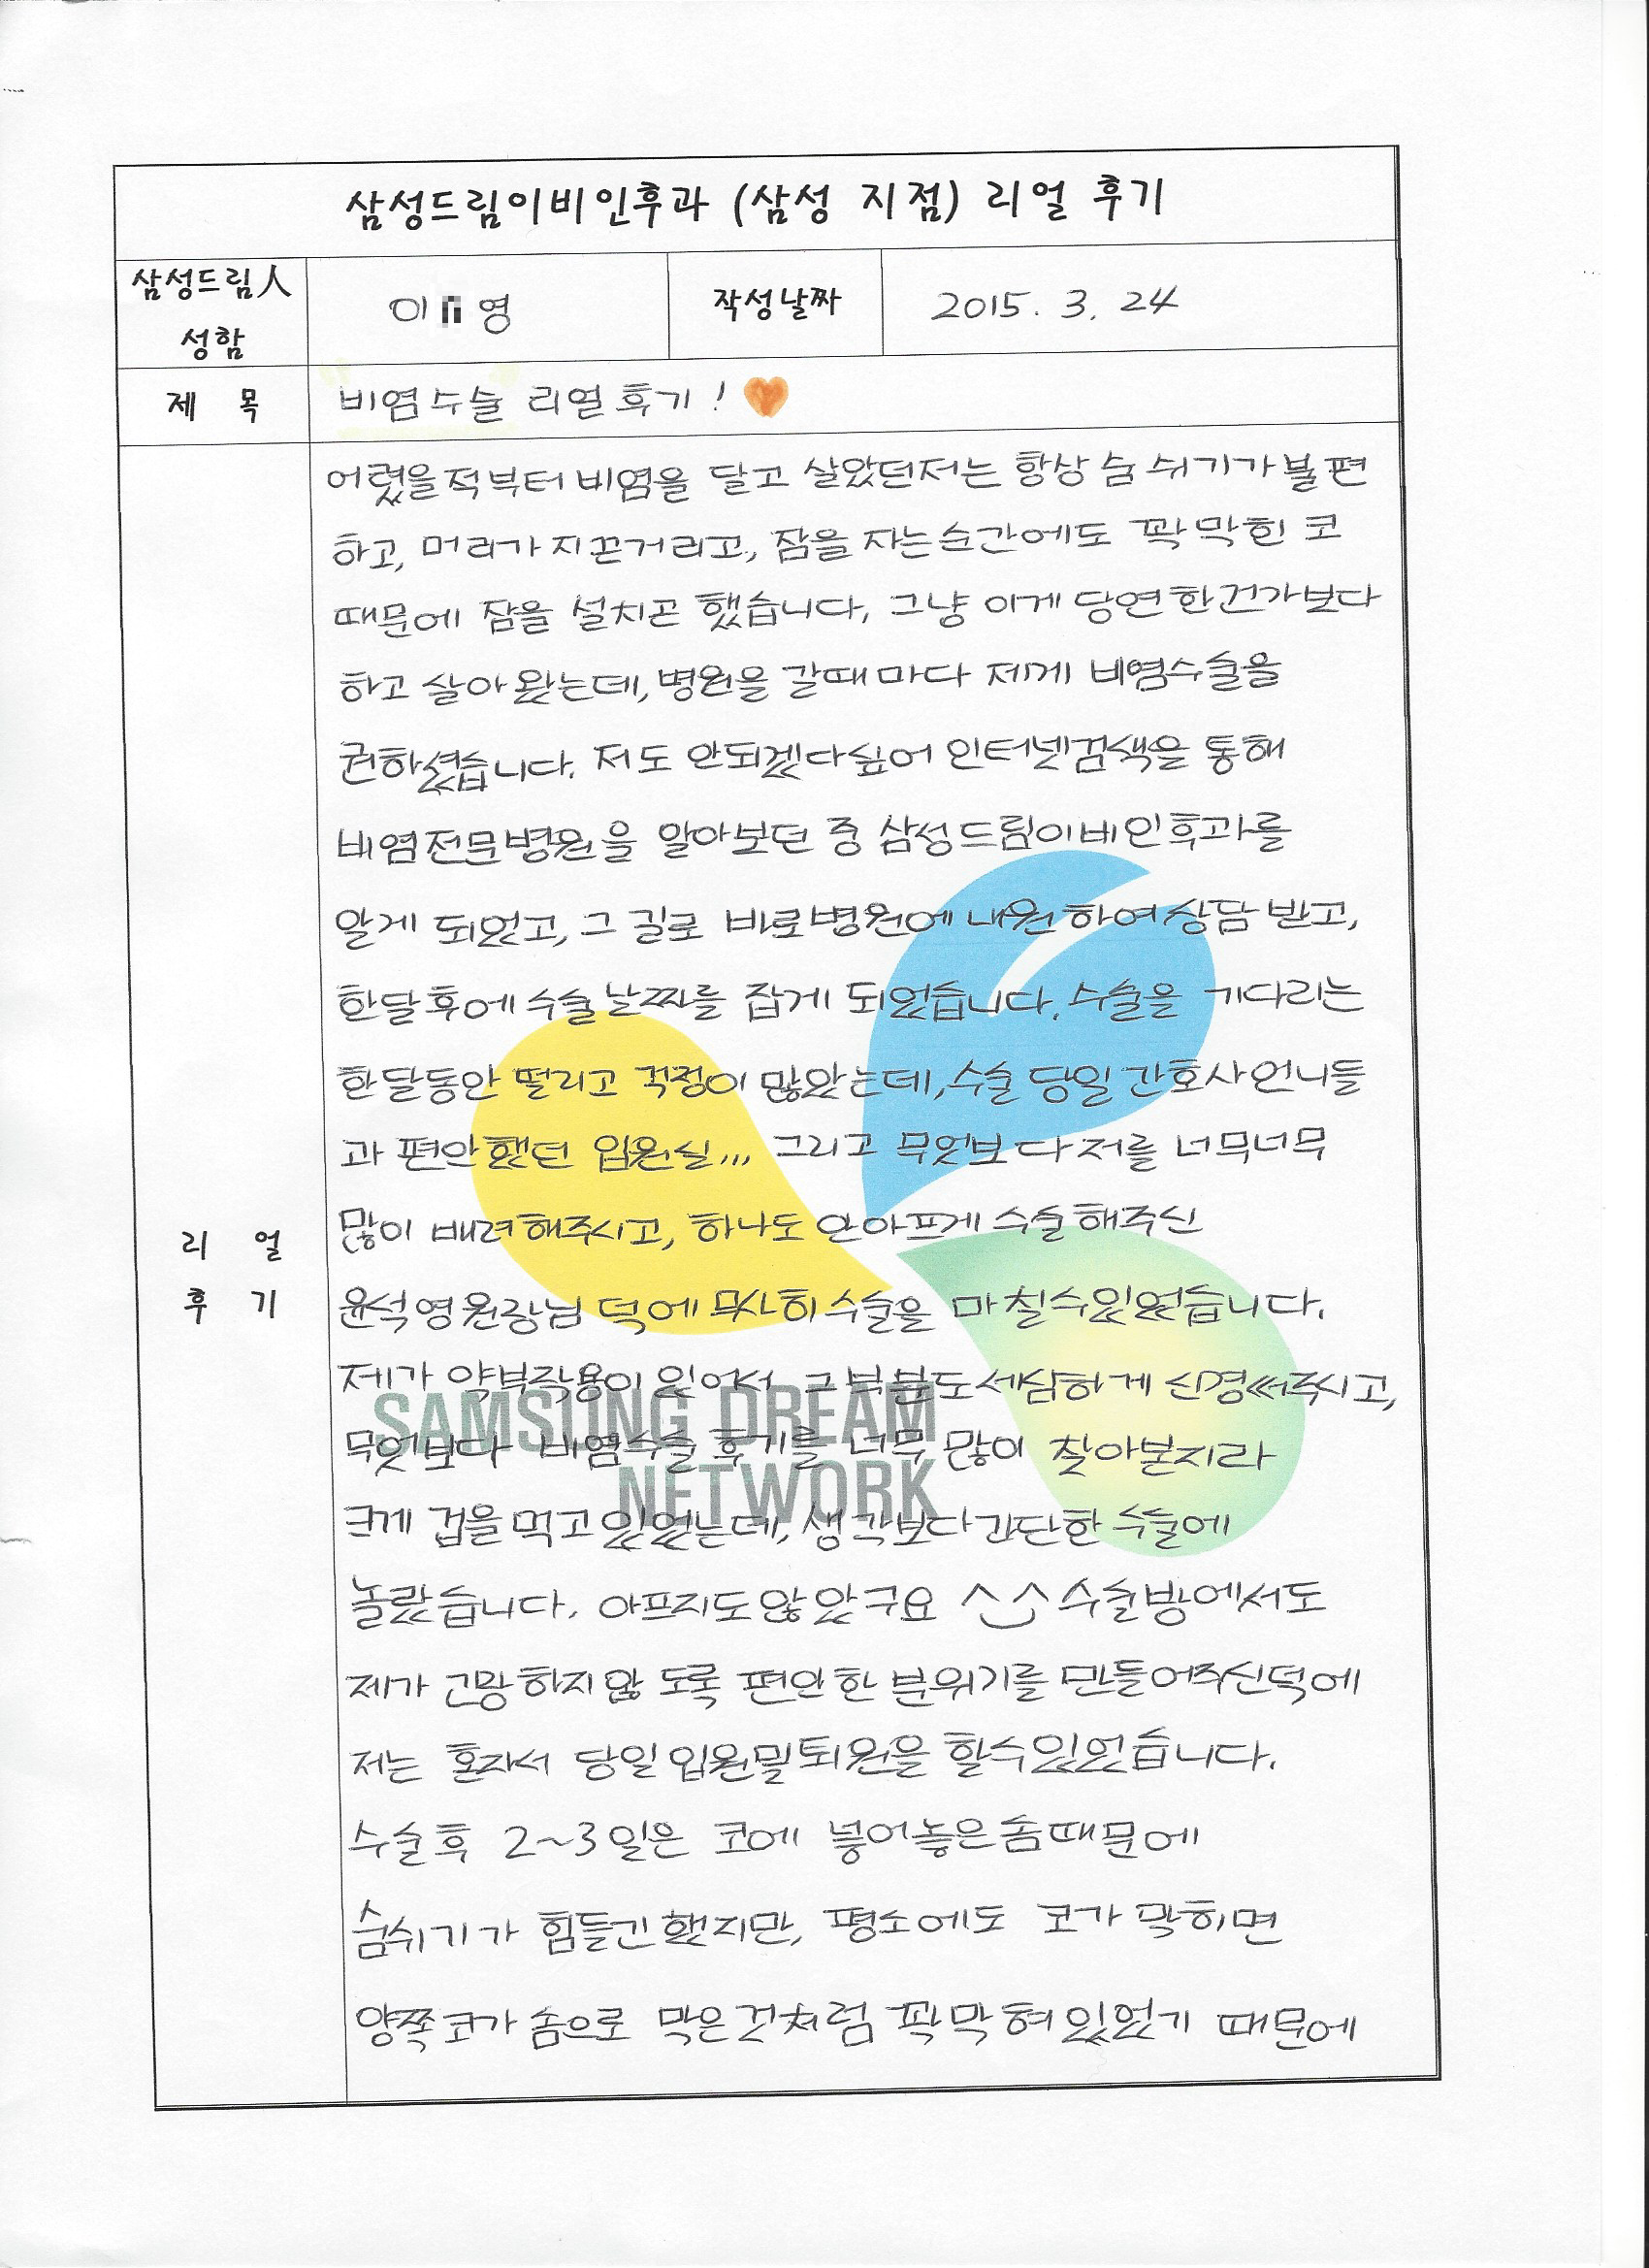 삼성드림이비인후과 (삼성 지점) 리얼 후기
삼성드림人
성함
이 영
작성날짜
2015. 3. 24
제 목
비염수술 리얼후기!
리 얼
후 기
어렸을적부터 비염을 달고 살았던저는 항상 숨 쉬기가 불편
하고, 머리가 지끈거리고, 잠을 자는순간에도 꽉 막힌 코
때문에 잠을 설치곤 했습니다, 그냥 이게 당연한건가보다
하고 살아왔는데, 병원을 갈때마다 제게 비염수술을
권하셨습니다. 저도 안되겠다싶어 인터넷검색을 통해
비염전문병원을 알아보던 중 삼성드림이비인후과를
알게 되었고, 그 길로 바로병원에 내원하여 상담 받고,
한달후에 수술날짜를 잡게 되었습니다. 수술을 기다리는
한달동안 떨리고 걱정이 많았는데, 수술 당일 간호사언니들
과 편안했던 입원실... 그리고 무엇보다 저를 너무너무
많이 배려해주시고, 하나도 안아프게 수술해주신
윤석영원장님 덕에 무사히 수술을 마칠수있었습니다.
제가 약부작용이 있어서 그부분도 세심하게 신경써주시고,
무엇보다 비염수술 후기를 너무 많이 찾아본지라
크게 겁을 먹고있었는데, 생각보다 간단한 수술에
놀랐습니다. 아프지도않았구요 ^◡^ 수술방에서도
제가 긴망하지않도록 편안한 분위기를 만들어주신덕에
저는 혼자서 당일입원및퇴원을 할수있었습니다.
수술후 2~3일은 코에 넣어놓은솜때문에
숨쉬기가 힘들긴했지만, 평소에도 코가 막히면
양쪽코가 솜으로 막은것처럼 꽉막혀있었기 때문에
SAMSUNG DREAM
NETWORK